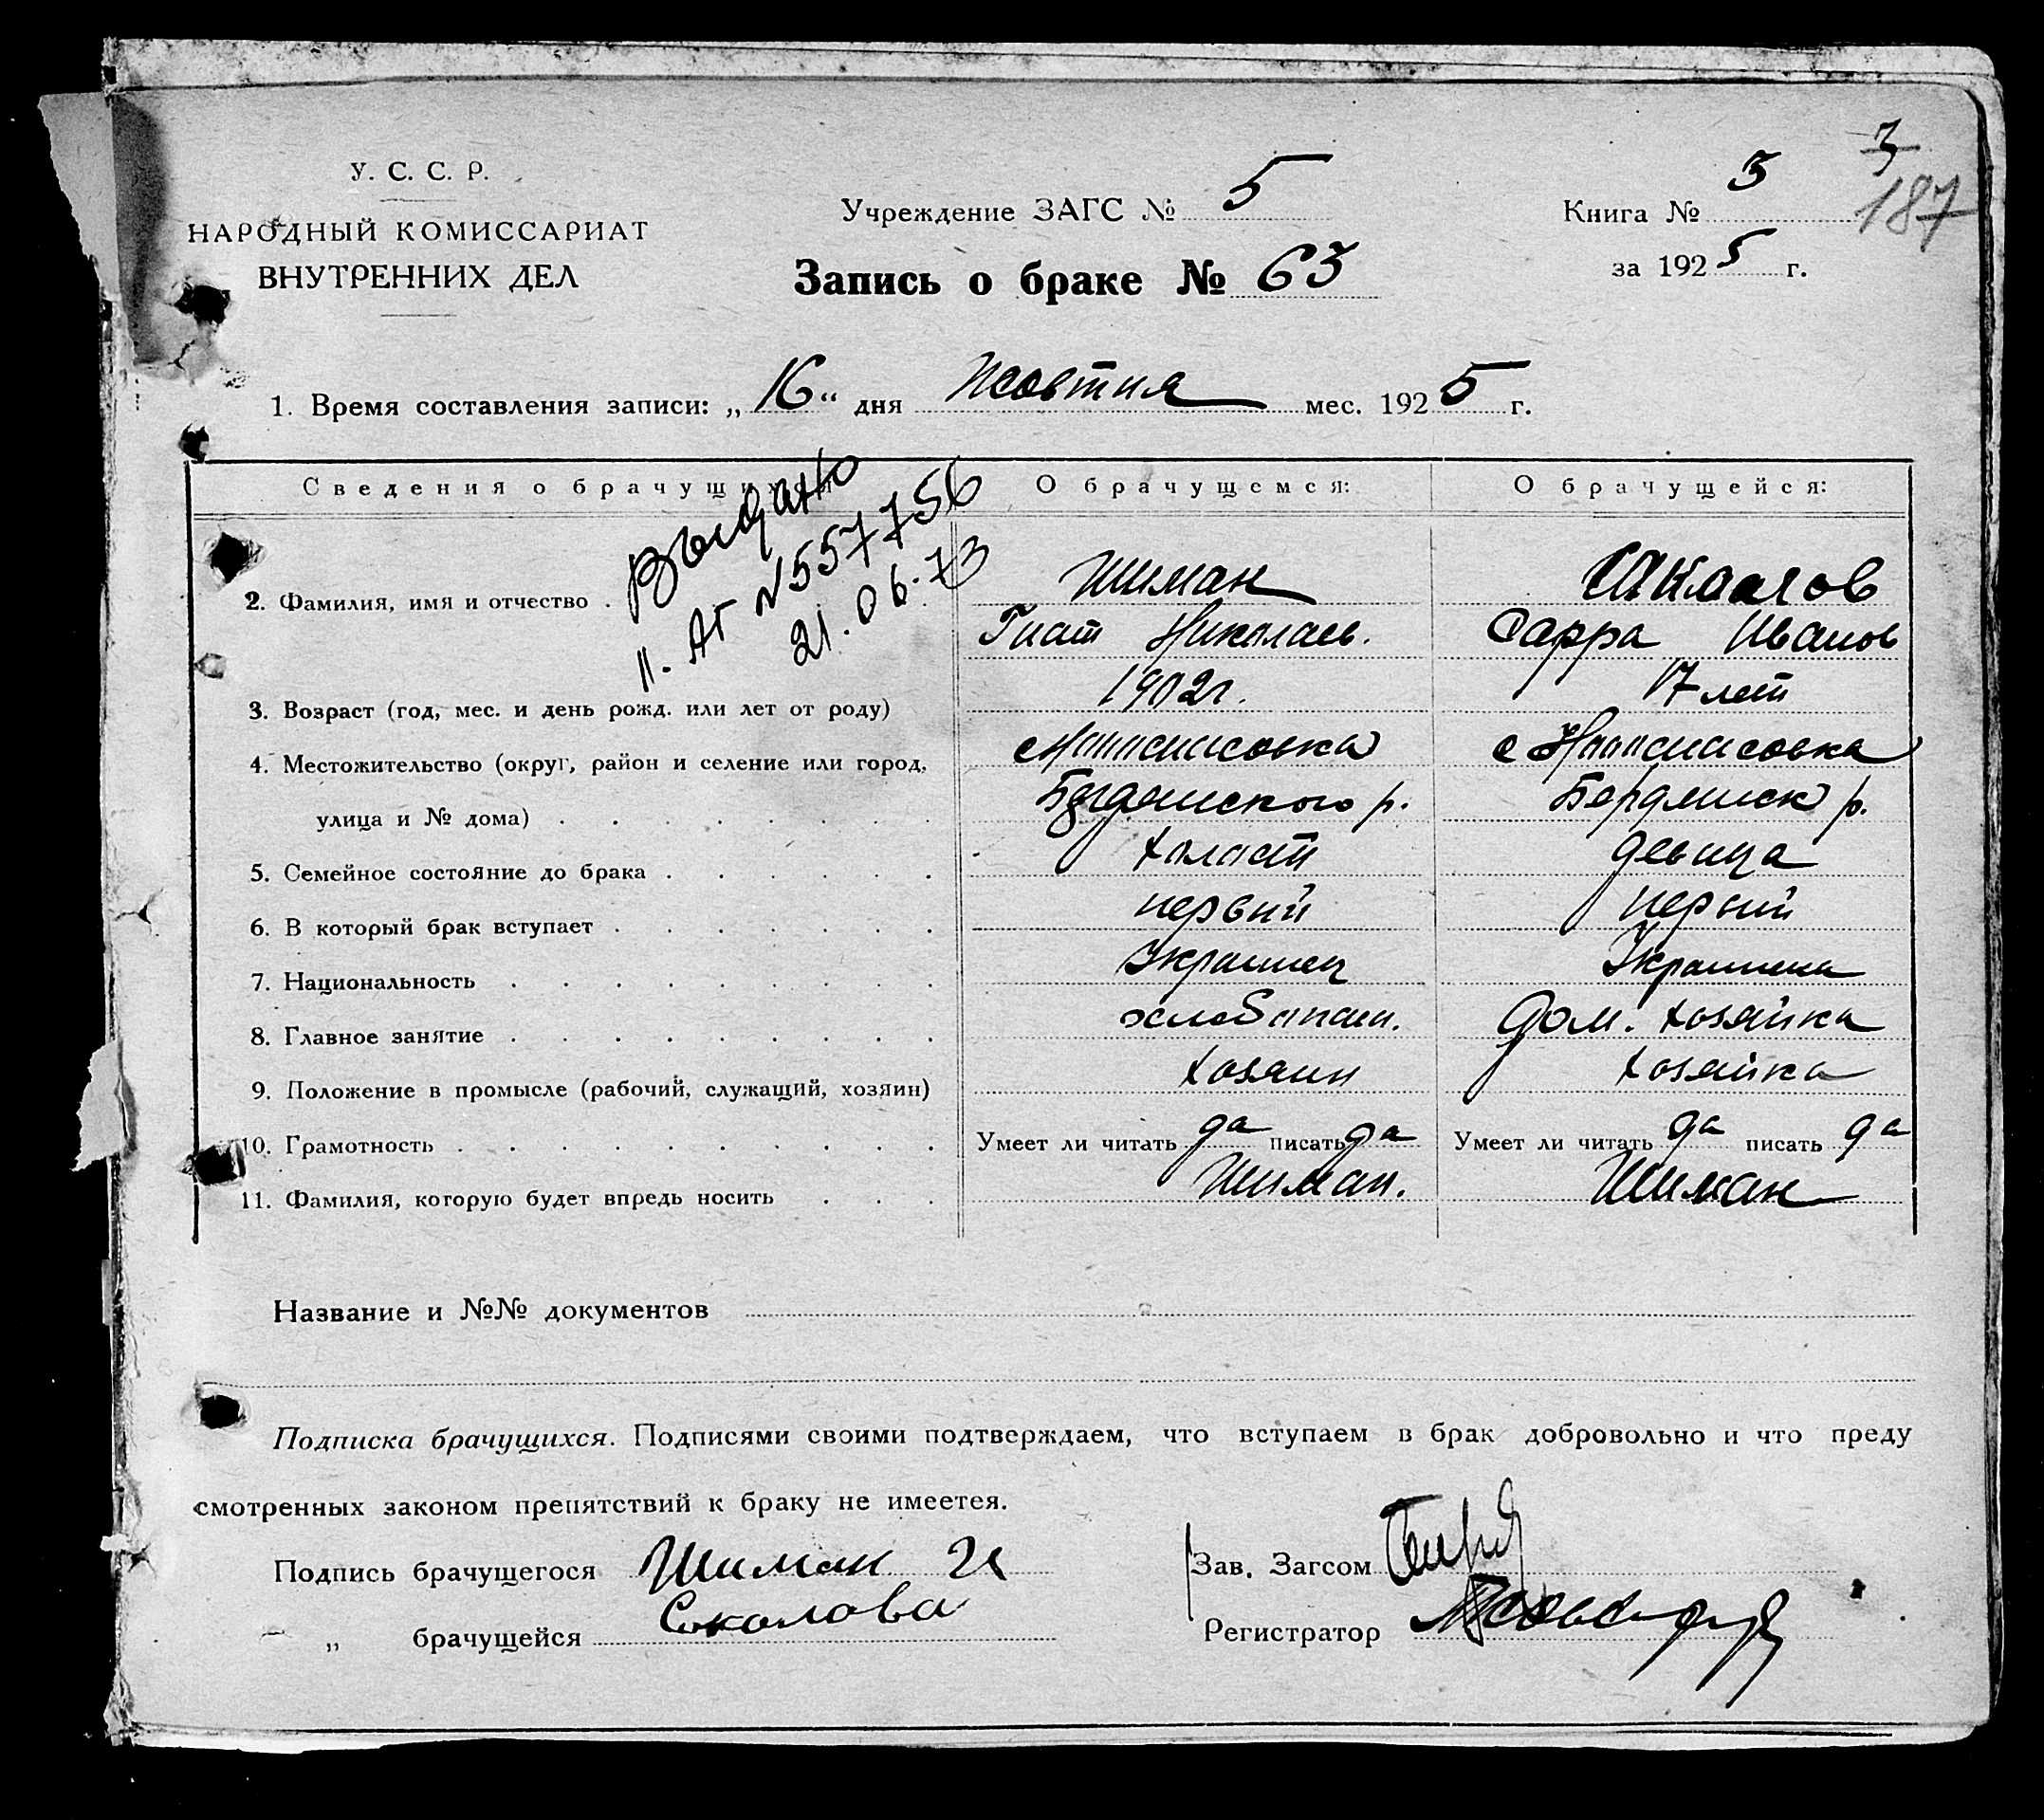 3
187
У. С. С. Р.
НАРОДНЫЙ КОМИССАРИАТ
ВНУТРЕННИХ ДЕЛ
Учреждение ЗАГС № 5
Запись о браке № 63
Книга № 3
за 1925 г.
1. Время составления записи: „16“ дня Жовтня мес. 1925 г.
Сведения о брачущихся О брачущемся: О брачущейся:
Выдано
II. АГ №557756
21.06.73
2. Фамилия, имя и отчество . Шиман
Николаев. Сарра Иванов
3. Возраст (год, мес. и день рожд. или лет от роду) 1902г. 17 лет
4. Местожительство (округ, район и селение или город,
улица и № дома) . р. Бердянск р.
5. Семейное состояние до брака . холост девица
6. В который брак вступает . первий перший
7. Национальность . Украинец Украинка
8. Главное занятие . хлебопаш. дом. хозяйка
9. Положение в промысле (рабочий, служащий, хозяин) хозяин хозяйка
10. Грамотность . Умеет ли читать да писать да Умеет ли читать да писать да
11. Фамилия, которую будет впредь носить . Шиман. Шиман
Название и №№ документов
Подписка брачущихся. Подписями своими подтверждаем, что вступаем в брак добровольно и что преду
смотренных законом препятствий к браку не имеется.
Подпись брачущегося Шиман И
„ брачущейся Соколова
Зав. Загсом
Регистратор